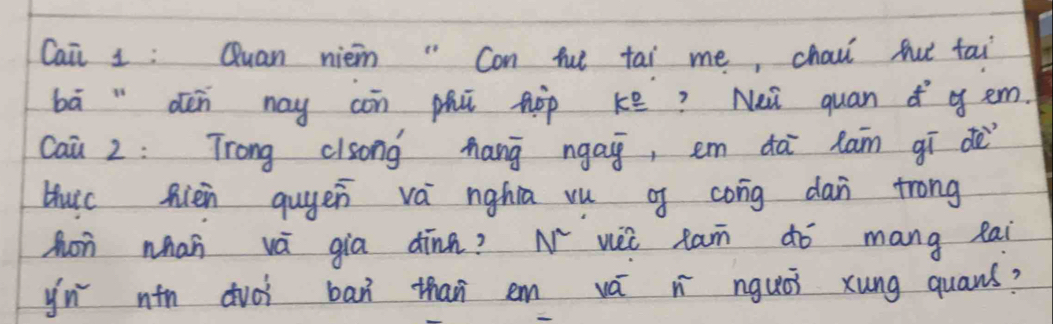 Câu 1 : Quan niệm " Con hư tại mẹ, cháu hư tại
bà " đến nay còn phù hợp kº ? Nêu quan đ' of em.
Câu 2 : Trong c/sống hằng ngày, em đã làm gì để
thực hiện quyền và nghĩa vụ of công dân trong
hôn nhân và gia đình? N~ việc làm đó mang lại
ý'n~ ntn đvới bản thân em và n~ người xung quanh?